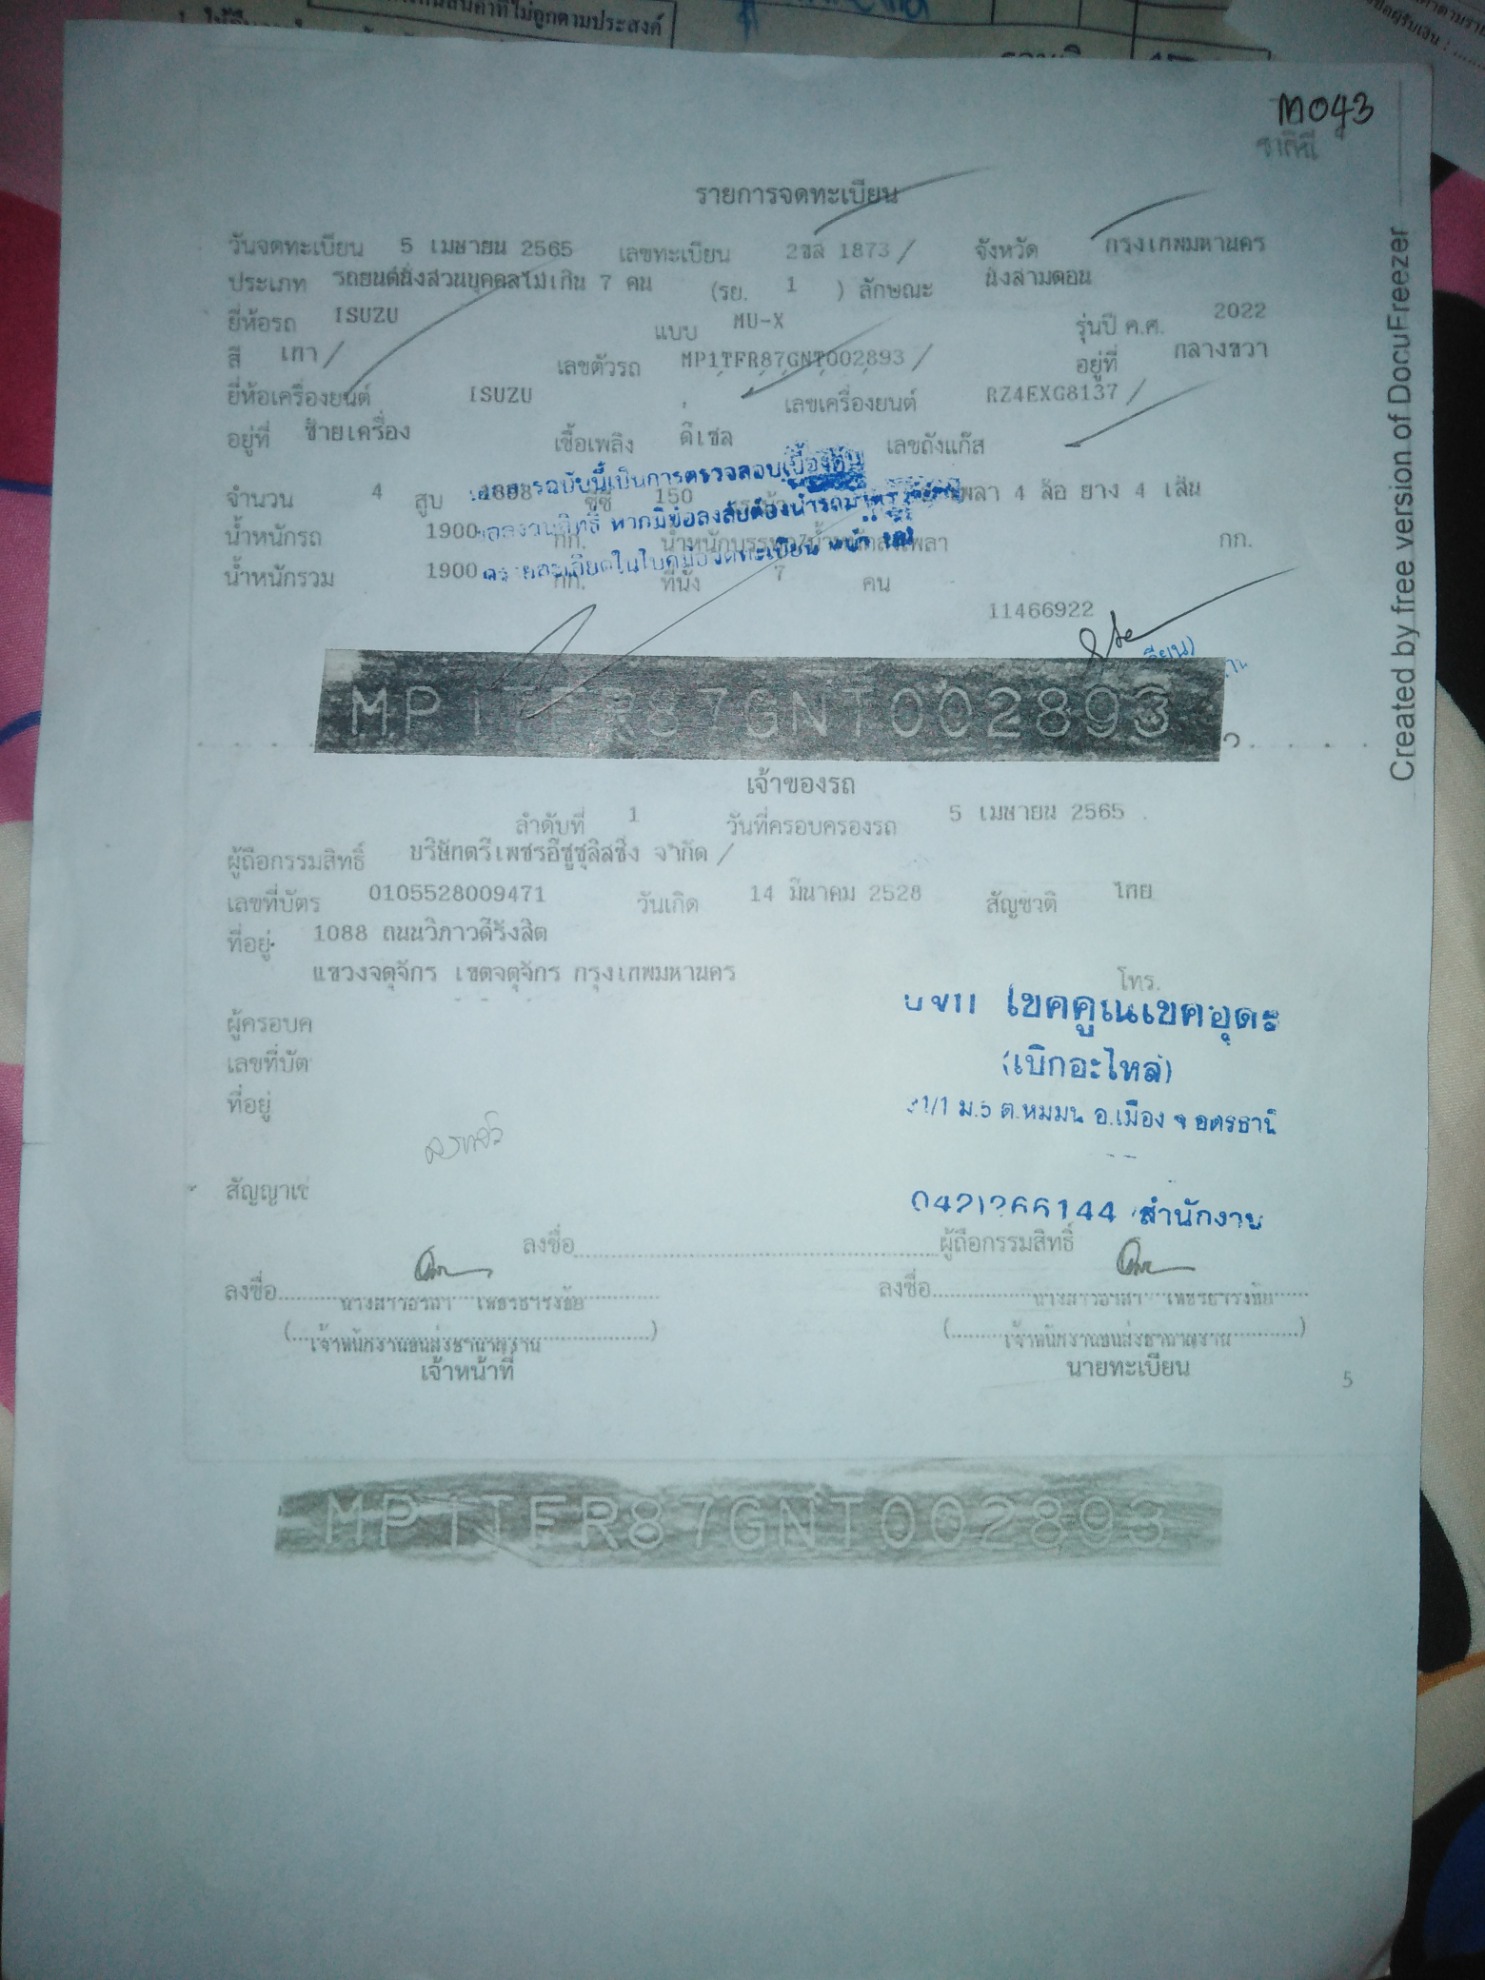 นสินค้าที่ไม่ถูกตามประสงค์
M043
รายการจดทะเบียน
วันจดทะเบียน 5 เมษายน 2565 เลขทะเบียน 2ขส 1873 / จังหวัด กรุงเทพมหานคร
ประเภท รถยนต์นั่งส่วนบุคคลไม่เกิน 7 คน (รย. 1 ) ลักษณะ นั่งสามตอน
ยี่ห้อรถ ISUZU แบบ MU-X รุ่นปี ค.ศ. 2022
สี เทา / เลขตัวรถ MP1TFR87GNT002893 / อยู่ที่ กลางขวา
ยี่ห้อเครื่องยนต์ ISUZU เลขเครื่องยนต์ RZ4EXG8137 /
อยู่ที่ ซ้ายเครื่อง เชื้อเพลิง ดีเซล เลขถังแก๊ส
ฉบับนี้เป็นการตรวจสอบเบื้องต้น
จำนวน 4 สูบ ซีซี 150 เพลา 4 ล้อ ยาง 4 เส้น
หากมีข้อสงสัยต้องนำรถมา
น้ำหนักรถ 1900 กก. น้ำหนักบรรทุก/น้ำหนักลงเพลา กก.
น้ำหนักรวม 1900 กก. ที่นั่ง 7 คน
11466922
MP1TFR87GNT002893
เจ้าของรถ
ลำดับที่ 1 วันที่ครอบครองรถ 5 เมษายน 2565
ผู้ถือกรรมสิทธิ์ บริษัทตรีเพชรอีซูซุลิสซิ่ง จำกัด /
เลขที่บัตร 0105528009471 วันเกิด 14 มีนาคม 2528 สัญชาติ ไทย
ที่อยู่ 1088 ถนนวิภาวดีรังสิต
แขวงจตุจักร เขตจตุจักร กรุงเทพมหานคร โทร.
ผู้ครอบค
(เบิกอะไหล่)
เลขที่บัต
ที่อยู่
1/1 ม.5 ต.หมมน อ.เมือง จ อดรธานี
สัญญาเช่
สำนักงาน
ลงชื่อ ผู้ถือกรรมสิทธิ์
ลงชื่อ ลงชื่อ
เจ้าพนักงานขนส่งชำนาญงาน เจ้าพนักงานขนส่งชำนาญงาน
เจ้าหน้าที่ นายทะเบียน
5
MP1TFR87GNT002893
Created by free version of DocuFreezer